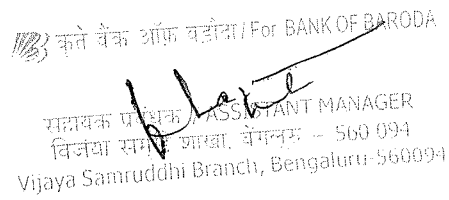 कृते बैंक ऑफ़ बड़ौदा/For BANK OF BARODA
सहायक प्रबंधक / ASSISTANT MANAGER
विजया समृद्धि शाखा, बेंगलूरु - 560 094
Vijaya Samruddhi Branch, Bengaluru-560094